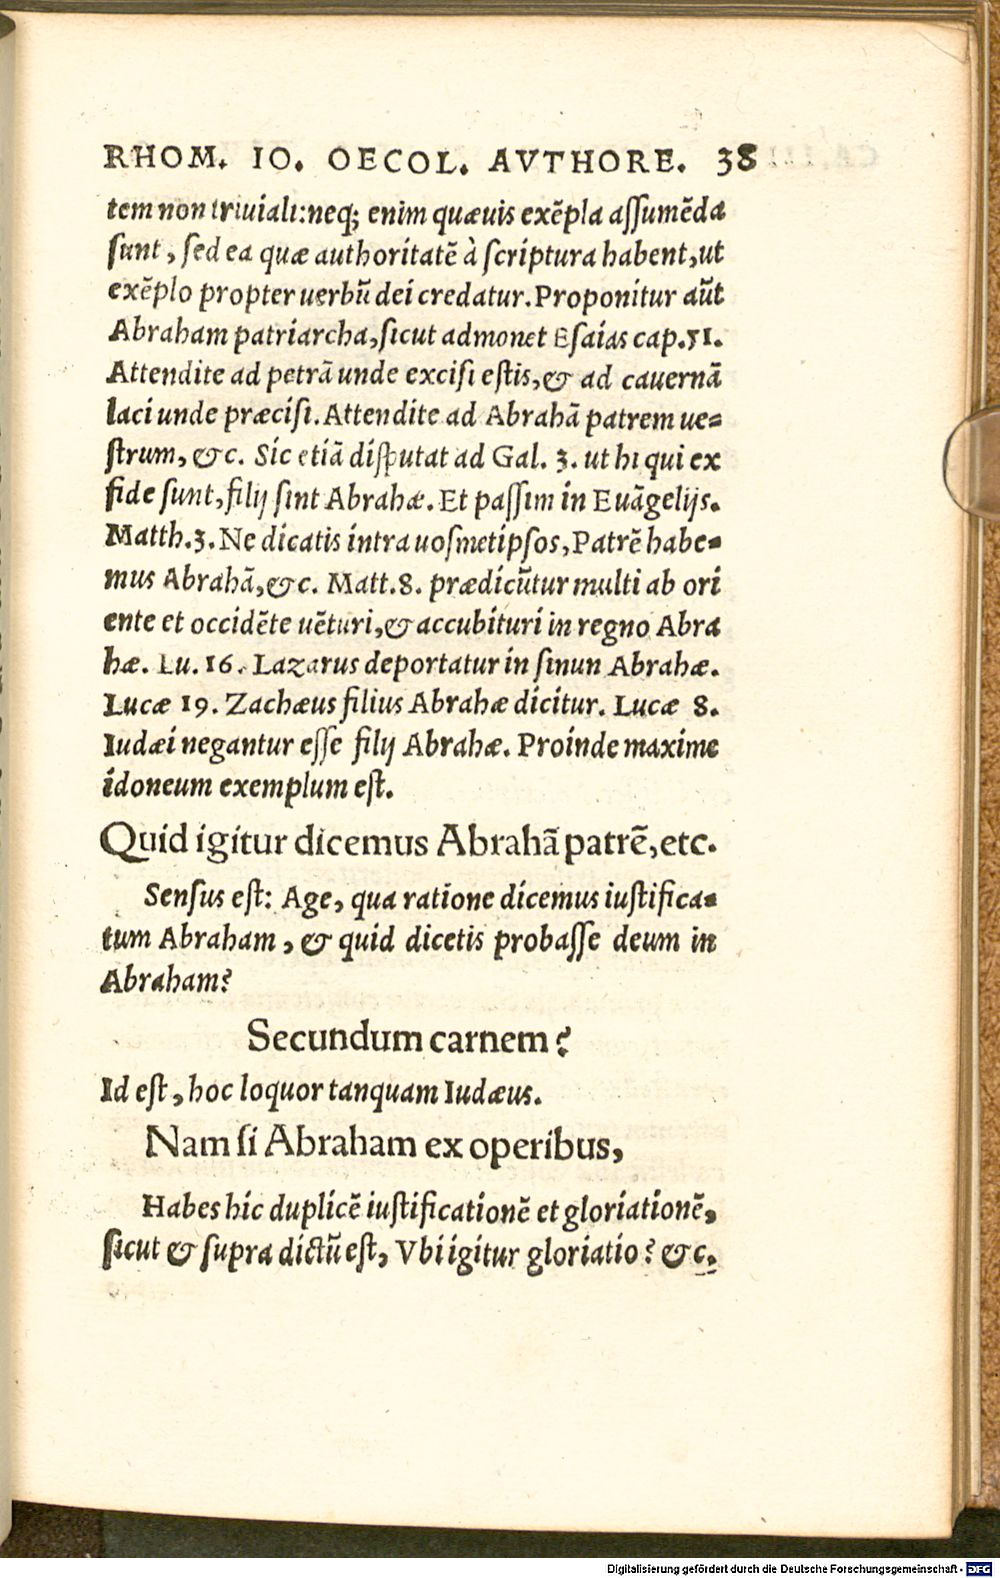 RHOM. IO. OECOL. AVTHORE. 38
tem non triuiali:neq; enim quæuis exẽpla aſſumẽda
ſunt, ſed ea quæ authoritatẽ à ſcriptura habent,ut
exẽplo propter uerbũ dei credatur.Proponitur aũt
Abraham patriarcha,ſicut admonet Eſaias cap.51.
Attendite ad petrã unde exciſi eſtis,& ad cauernã
laci unde præciſi.Attendite ad Abrahã patrem ue=
ſtrum, &c. Sic etiã diſputat ad Gal. 3. ut hi qui ex
fide ſunt,filij ſint Abrahæ. Et paſſim in Euãgelijs.
Matth.3. Ne dicatis intra uoſmetipſos,Patrẽ habe=
mus Abrahã,&c. Matt.8. prædicũtur multi ab ori
ente et occidẽte uẽturi,& accubituri in regno Abra
hæ. Lu. 16. Lazarus deportatur in ſinun Abrahæ.
Lucæ 19. Zachæus filius Abrahæ dicitur. Lucæ 8.
Iudæi negantur eſſe filij Abrahæ. Proinde maxime
idoneum exemplum eſt.
Quid igitur dicemus Abrahã patrẽ,etc.
Senſus eſt: Age, qua ratione dicemus iuſtifica=
tum Abraham, & quid dicetis probaſſe deum in
Abraham?
Secundum carnem?
Id eſt, hoc loquor tanquam Iudæus.
Nam ſi Abraham ex operibus,
Habes hic duplicẽ iuſtificationẽ et gloriationẽ,
ſicut & ſupra dictũ eſt, Vbi igitur gloriatio? &c.
Digitalisierung gefördert durch die Deutsche Forschungsgemeinschaft - DFG